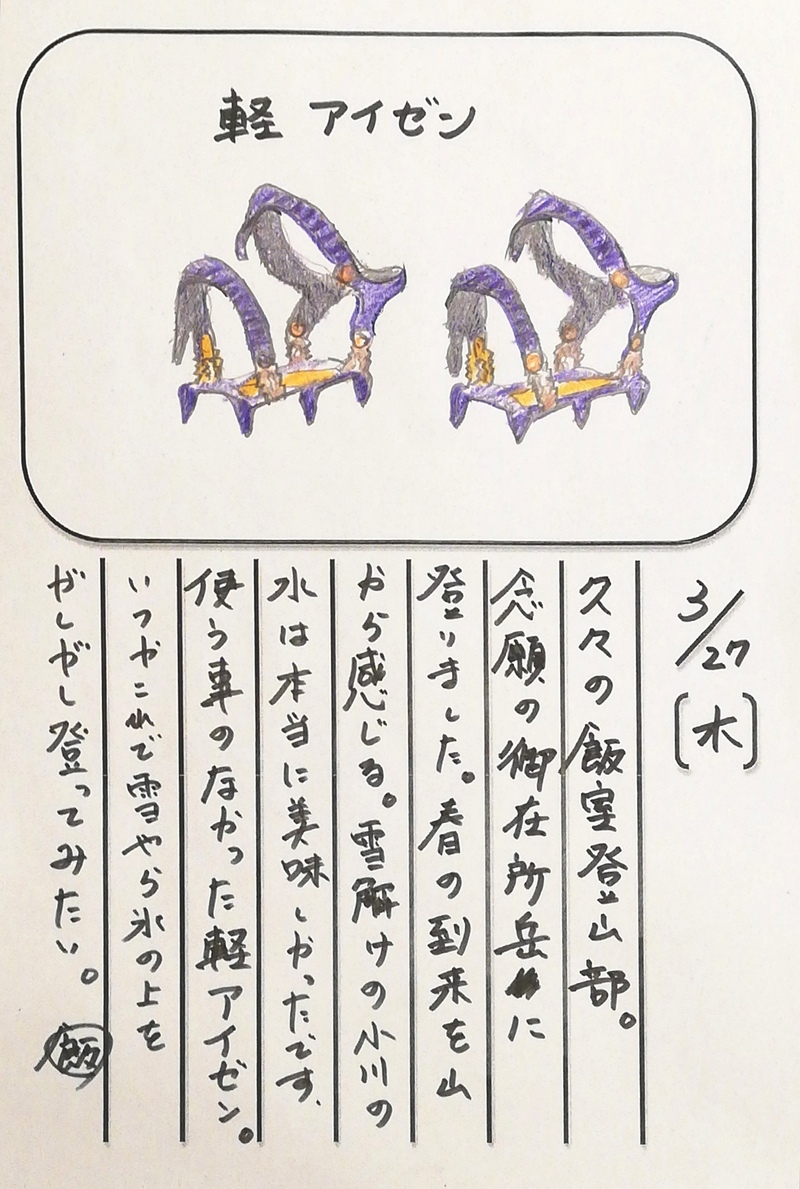 軽 アイゼン
3/27 [木]
久々の飯室登山部。
念願の御在所岳に
登りました。春の到来を山
から感じる。雪解けの小川の
水は本当に美味しかったです、
使う事のなかった軽アイゼン。
いつかこれで雪やら氷の上を
がしがし登ってみたい。 飯